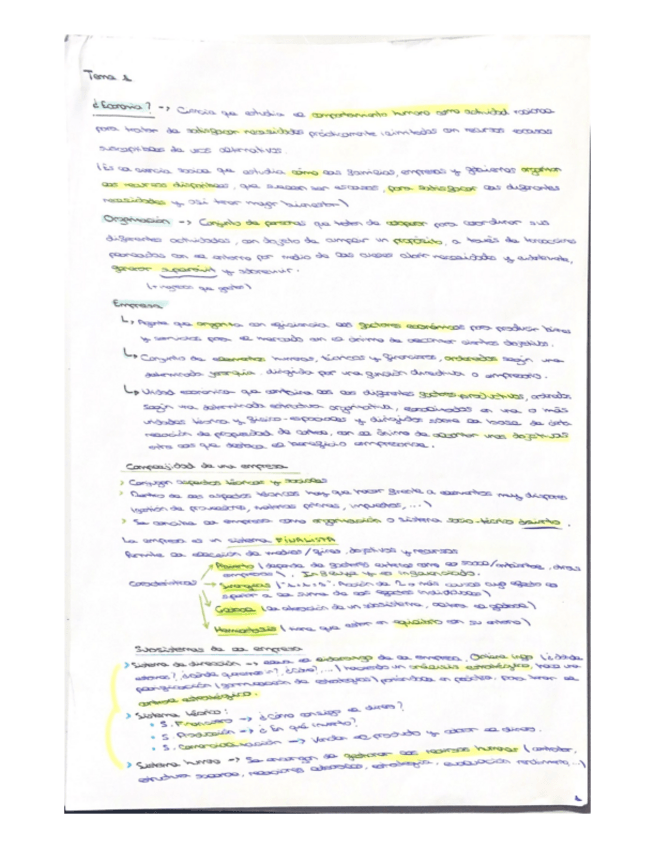 Tema 1
¿Economía? -> Ciencia que estudia el comportamiento humano como actividad racional
para tratar de satisfacer necesidades prácticamente ilimitadas con recursos escasos
susceptibles de usos alternativos.
(Es la ciencia social que estudia cómo las familias, empresas y gobiernos organizan
los recursos disponibles, que suelen ser escasos, para satisfacer las diferentes
necesidades y así tener mayor bienestar)
Organización -> Conjunto de personas que tratan de cooperar para coordinar sus
diferentes actividades, con objeto de cumplir un propósito, a través de
con el entorno por medio de las cuales necesidades y
generar superávit y sobrevivir.
(+ ingresos que gastos)
Empresa
Agente que organiza con eficiencia los factores económicos para producir bienes
y servicios para el mercado con el ánimo de alcanzar ciertos objetivos.
Conjunto de elementos humanos, técnicos y financieros, ordenados según una
determinada jerarquía dirigida por una función directiva o empresario.
Unidad económica que combina los diferentes factores productivos, ordenados
según una determinada estructura organizativa, en una o más
unidades técnica y físico-espaciales y dirigidos sobre la base de cierta
relación de propiedad de control, con el ánimo de alcanzar unos objetivos
entre los que destaca el beneficio empresarial.
Complejidad de una empresa
> Conjugan aspectos técnicos y sociales
> Dentro de los aspectos técnicos hay que hacer frente a elementos muy dispares
(gestión de proveedores, materias primas, impuestos, ...)
> Se concibe la empresa como organización o sistema socio-técnico abierto.
La empresa es un sistema FINALISTA
Permite la elección de medios/fines, objetivos y recursos
Características
Abierto (depende de factores externos como la social/ambiental, otras
empresas). Influye y es influenciado.
Sinérgico ("2+2=5". Acción de 2 o más causas cuyo efecto es
superior a la suma de los efectos individuales)
Global (la alteración de un subsistema, altera el global)
Homeostasis (tiene que estar en equilibrio con su entorno)
Subsistemas de la empresa
> Sistema de dirección -> lleva el liderazgo de la empresa. (¿dónde
estamos?, ¿dónde queremos ir?, ¿cómo?, ...) haciendo un análisis estratégico, hace una
planificación (formulación de estrategias) poniéndola en práctica, para tener el
control estratégico.
> Sistema técnico:
• S. Financiero -> ¿Cómo consigo el dinero?
• S. Producción -> ¿En qué invierto?
• S. Comercialización -> Vender el producto y el dinero.
> Sistema humano -> Se encargan de gestionar los recursos humanos (contratar,
estructura, relaciones laborales, estrategia, evaluación rendimiento...)
1